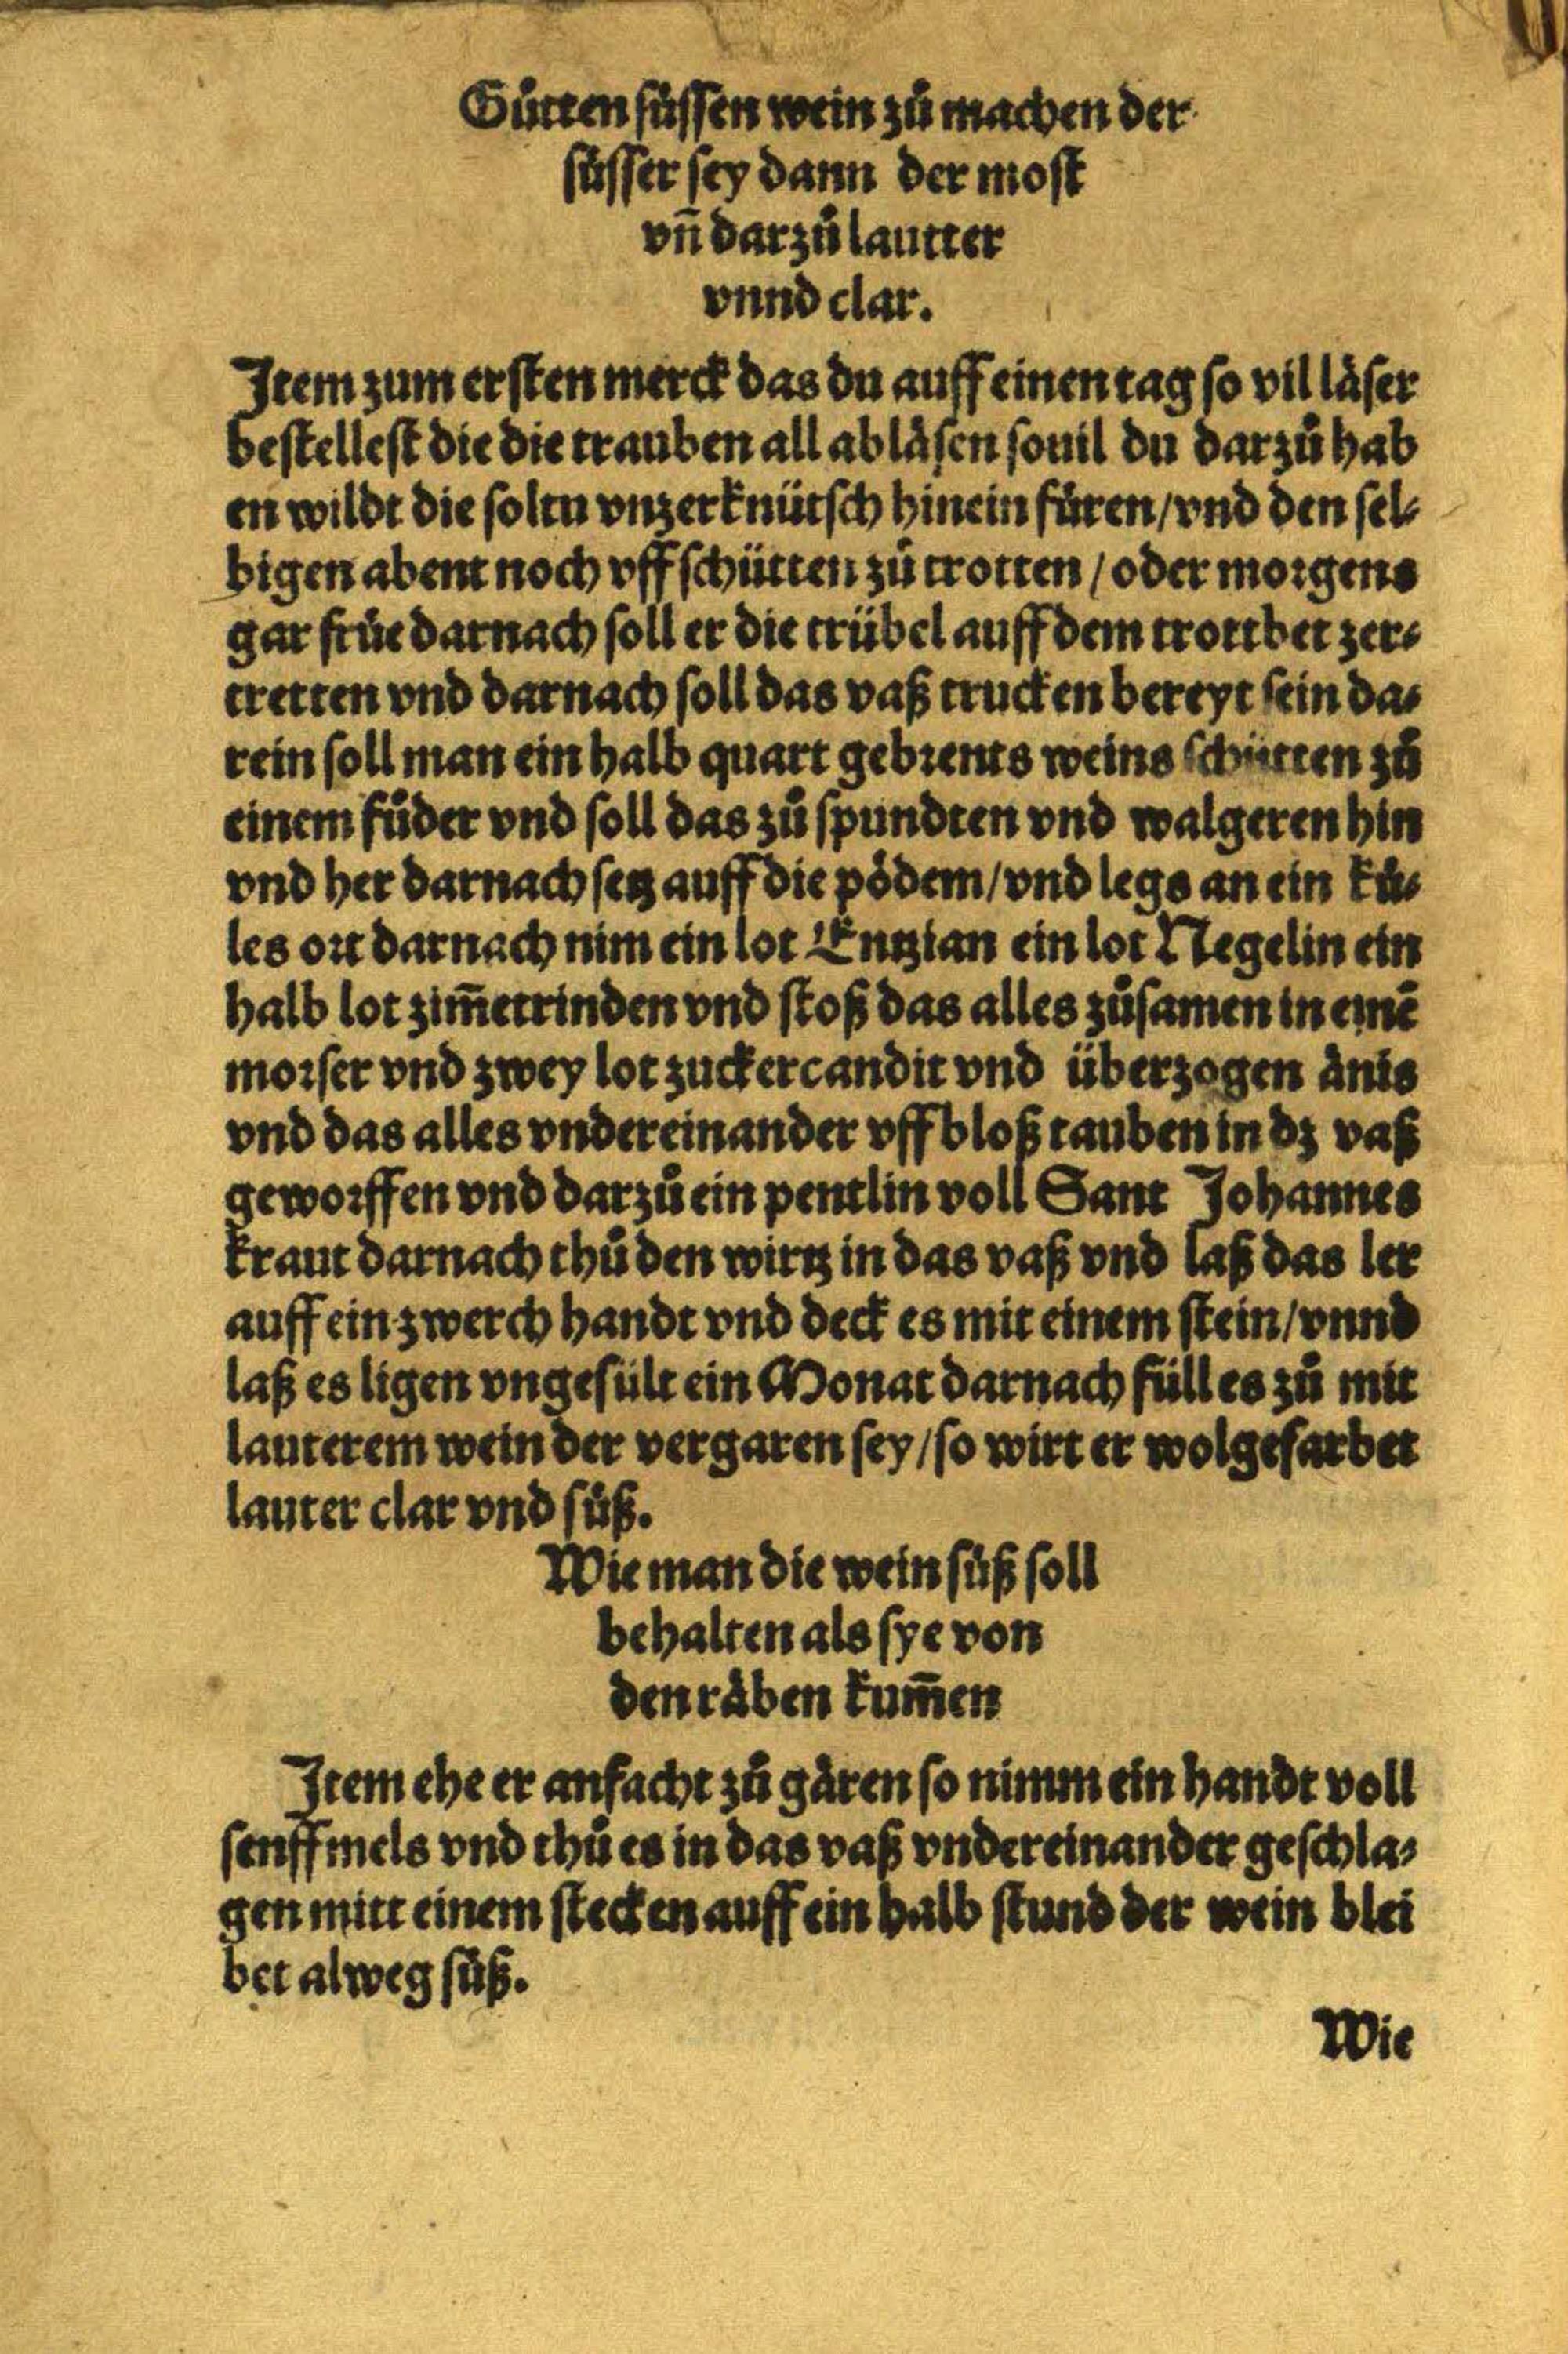 Gůtten süssen wein zů machen der
süsser sey dann der most
vn̄ darzů lautter
vnnd clar.
Item zum ersten merck das du auff einen tag so vil läser
bestellest die die trauben all abläsen souil du darzů hab
en wildt die soltu vnzerknütsch hinein füren / vnd den sel⸗
bigen abent noch vff schütten zů trotten / oder morgens
gar früe darnach soll er die trübel auff dem trottbet zer⸗
tretten vnd darnach soll das vaß trucken bereyt sein da⸗
rein soll man ein halb quart gebrents weins schütten zů
einem fůder vnd soll das zů spundten vnd walgeren hin
vnd her darnach setz auff die pödem / vnd legs an ein kü⸗
les ort darnach nim ein lot Entzian ein lot Negelin ein
halb lot zim̄etrinden vnd stoß das alles zůsamen in einē
morser vnd zwey lot zuckercandit vnd überzogen änis
vnd das alles vndereinander vff bloß tauben in dz vaß
geworffen vnd darzů ein pentlin voll Sant Johannes
kraut darnach thů den wirtz in das vaß vnd laß das ler
auff ein zwerch handt vnd deck es mit einem stein / vnnd
laß es ligen vngefült ein Monat darnach füll es zů mit
lauterem wein der vergaren sey / so wirt er wolgefarbet
lauter clar vnd süß.
Wie man die wein süß soll
behalten als sye von
den räben kum̄en
Item ehe er anfacht zů gären so nimm ein handt voll
senffmels vnd thů es in das vaß vndereinander geschla⸗
gen mitt einem stecken auff ein halb stund der wein blei
bet alweg süß.
Wie